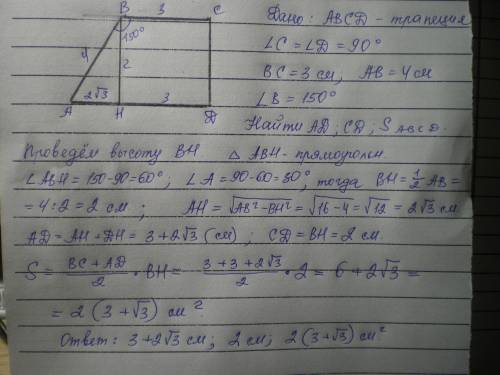 B 3 C
Дано: ABCD - трапеция
150°
∠C = ∠D = 90°
4
2
BC = 3 см, AB = 4 см
2√3
3
∠B = 150°
A H D
Найти AD; CD; S ABCD.
Проведём высоту BH. △ ABH - прямоугольн.
∠ABH = 150-90=60°; ∠A = 90-60=30°, тогда BH = 1/2 AB =
= 4:2 = 2 см; AH = √AB²-BH² = √16-4 = √12 = 2√3 см
AD = AH + DH = 3+2√3 (см); CD = BH = 2 см.
S = BC + AD / 2 · BH = 3+3+2√3 / 2 · 2 = 6+2√3 =
= 2 (3+√3) см².
Ответ: 3+2√3 см; 2 см; 2 (3+√3) см²